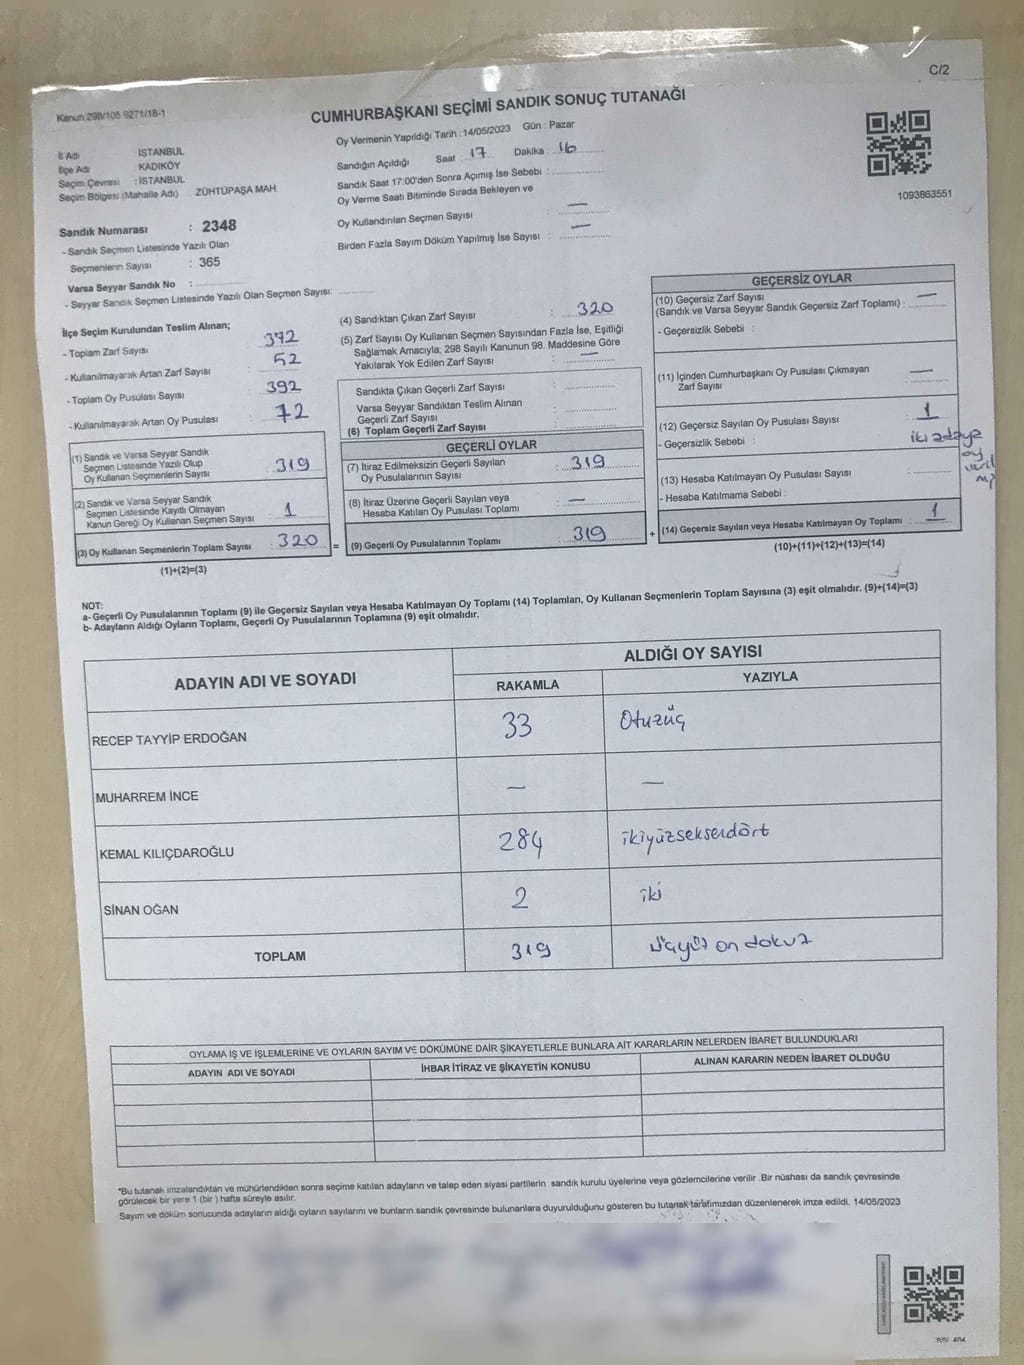 C/2
Kanun 298/105 6271/18-1
CUMHURBAŞKANI SEÇİMİ SANDIK SONUÇ TUTANAĞI
İl Adı İSTANBUL
İlçe Adı : KADIKÖY
Seçim Çevresi : İSTANBUL
Seçim Bölgesi (Mahalle Adı) ZÜHTÜPAŞA MAH.
Sandık Numarası : 2348
- Sandık Seçmen Listesinde Yazılı Olan
Seçmenlerin Sayısı : 365
Varsa Seyyar Sandık No :
- Seyyar Sandık Seçmen Listesinde Yazılı Olan Seçmen Sayısı:
Oy Vermenin Yapıldığı Tarih : 14/05/2023 Gün : Pazar
Sandığın Açıldığı Saat 17 Dakika 16
Sandık Saat 17:00'den Sonra Açımış İse Sebebi :
Oy Verme Saati Bitiminde Sırada Bekleyen ve
Oy Kullandırılan Seçmen Sayısı : —
Birden Fazla Sayım Döküm Yapılmış İse Sayısı : —
1093863551
İlçe Seçim Kurulundan Teslim Alınan;
- Toplam Zarf Sayısı : 372
- Kullanılmayarak Artan Zarf Sayısı : 52
- Toplam Oy Pusulası Sayısı : 392
- Kullanılmayarak Artan Oy Pusulası : 72
(1) Sandık ve Varsa Seyyar Sandık
Seçmen Listesinde Yazılı Olup
Oy Kullanan Seçmenlerin Sayısı : 319
(2) Sandık ve Varsa Seyyar Sandık
Seçmen Listesinde Kayıtlı Olmayan
Kanun Gereği Oy Kullanan Seçmen Sayısı : 1
(3) Oy Kullanan Seçmenlerin Toplam Sayısı : 320
(1)+(2)=(3)
(4) Sandıktan Çıkan Zarf Sayısı : 320
(5) Zarf Sayısı Oy Kullanan Seçmen Sayısından Fazla İse, Eşitliği
Sağlamak Amacıyla; 298 Sayılı Kanunun 98. Maddesine Göre
Yakılarak Yok Edilen Zarf Sayısı : —
Sandıkta Çıkan Geçerli Zarf Sayısı :
Varsa Seyyar Sandıktan Teslim Alınan
Geçerli Zarf Sayısı :
(6) Toplam Geçerli Zarf Sayısı :
= GEÇERLİ OYLAR
(7) İtiraz Edilmeksizin Geçerli Sayılan
Oy Pusulalarının Sayısı : 319
(8) İtiraz Üzerine Geçerli Sayılan veya
Hesaba Katılan Oy Pusulası Toplamı : —
(9) Geçerli Oy Pusulalarının Toplamı : 319
+
GEÇERSİZ OYLAR
(10) Geçersiz Zarf Sayısı
(Sandık ve Varsa Seyyar Sandık Geçersiz Zarf Toplamı) : —
- Geçersizlik Sebebi :
(11) İçinden Cumhurbaşkanı Oy Pusulası Çıkmayan
Zarf Sayısı : —
(12) Geçersiz Sayılan Oy Pusulası Sayısı : 1
- Geçersizlik Sebebi : iki adaya
oy
(13) Hesaba Katılmayan Oy Pusulası Sayısı :
- Hesaba Katılmama Sebebi :
(14) Geçersiz Sayılan veya Hesaba Katılmayan Oy Toplamı : 1
(10)+(11)+(12)+(13)=(14)
NOT:
a- Geçerli Oy Pusulalarının Toplamı (9) ile Geçersiz Sayılan veya Hesaba Katılmayan Oy Toplamı (14) Toplamları, Oy Kullanan Seçmenlerin Toplam Sayısına (3) eşit olmalıdır. (9)+(14)=(3)
b- Adayların Aldığı Oyların Toplamı, Geçerli Oy Pusulalarının Toplamına (9) eşit olmalıdır.
ADAYIN ADI VE SOYADI
ALDIĞI OY SAYISI
RAKAMLA YAZIYLA
RECEP TAYYİP ERDOĞAN 33 Otuzüç
MUHARREM İNCE — —
KEMAL KILIÇDAROĞLU 284 ikiyüzseksendört
SİNAN OĞAN 2 iki
TOPLAM 319 üçyüz on dokuz
OYLAMA İŞ VE İŞLEMLERİNE VE OYLARIN SAYIM VE DÖKÜMÜNE DAİR ŞİKAYETLERLE BUNLARA AİT KARARLARIN NELERDEN İBARET BULUNDUKLARI
ADAYIN ADI VE SOYADI İHBAR İTİRAZ VE ŞİKAYETİN KONUSU ALINAN KARARIN NEDEN İBARET OLDUĞU
"Bu tutanak imzalandıktan ve mühürlendikten sonra seçime katılan adayların ve talep eden siyasi partilerin sandık kurulu üyelerine veya gözlemcilerine verilir .Bir nüshası da sandık çevresinde
görülecek bir yere 1 (bir ) hafta süreyle asılır.
Sayım ve döküm sonucunda adayların aldığı oyların sayılarını ve bunların sandık çevresinde bulunanlara duyurulduğunu gösteren bu tutanak tarafımızdan düzenlenerek imza edildi. 14/05/2023